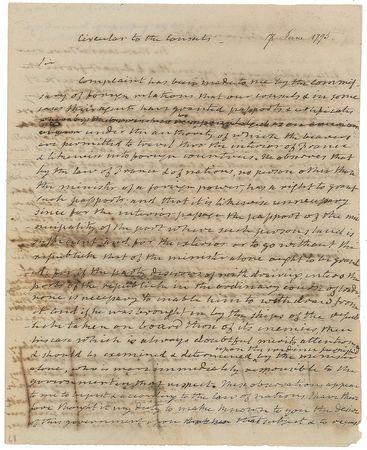 Circular to the Consuls. 7th June 1795.
Sir
Complaint has been made to me by the commis
sary of foreign relations that our consuls in some
cases their agents have granted passports & certificates
under the authority of which the bearers
are permitted to travel thro the interior of France
& likewise into foreign countries. He observes that
by the law of France & of nations, no person other than
the minister of a foreign power, has a right to grant
such passports, and that it is likewise unnecessary
since for the interior, the passport of the mu
nicipality of the port where such person, land is
sufficient and for the exterior or to go without the
republick that of the minister alone ought to be grant
ed, for if the party
port of the republick in the ordinary course of trade
none is necessary to enable him to withdraw from
it and if he was brought in by the ships of the repub
lick taken on board those of its enemies, then
his case which is always doubtful merits attention
& should be examined & determined by the minister
alone, who is more immediately responsible to the
government in that respect. These observations appear
to me to be just & according to the law of nations, I have there
fore thought it my duty to make known to you the desire
of this government upon that subject & to